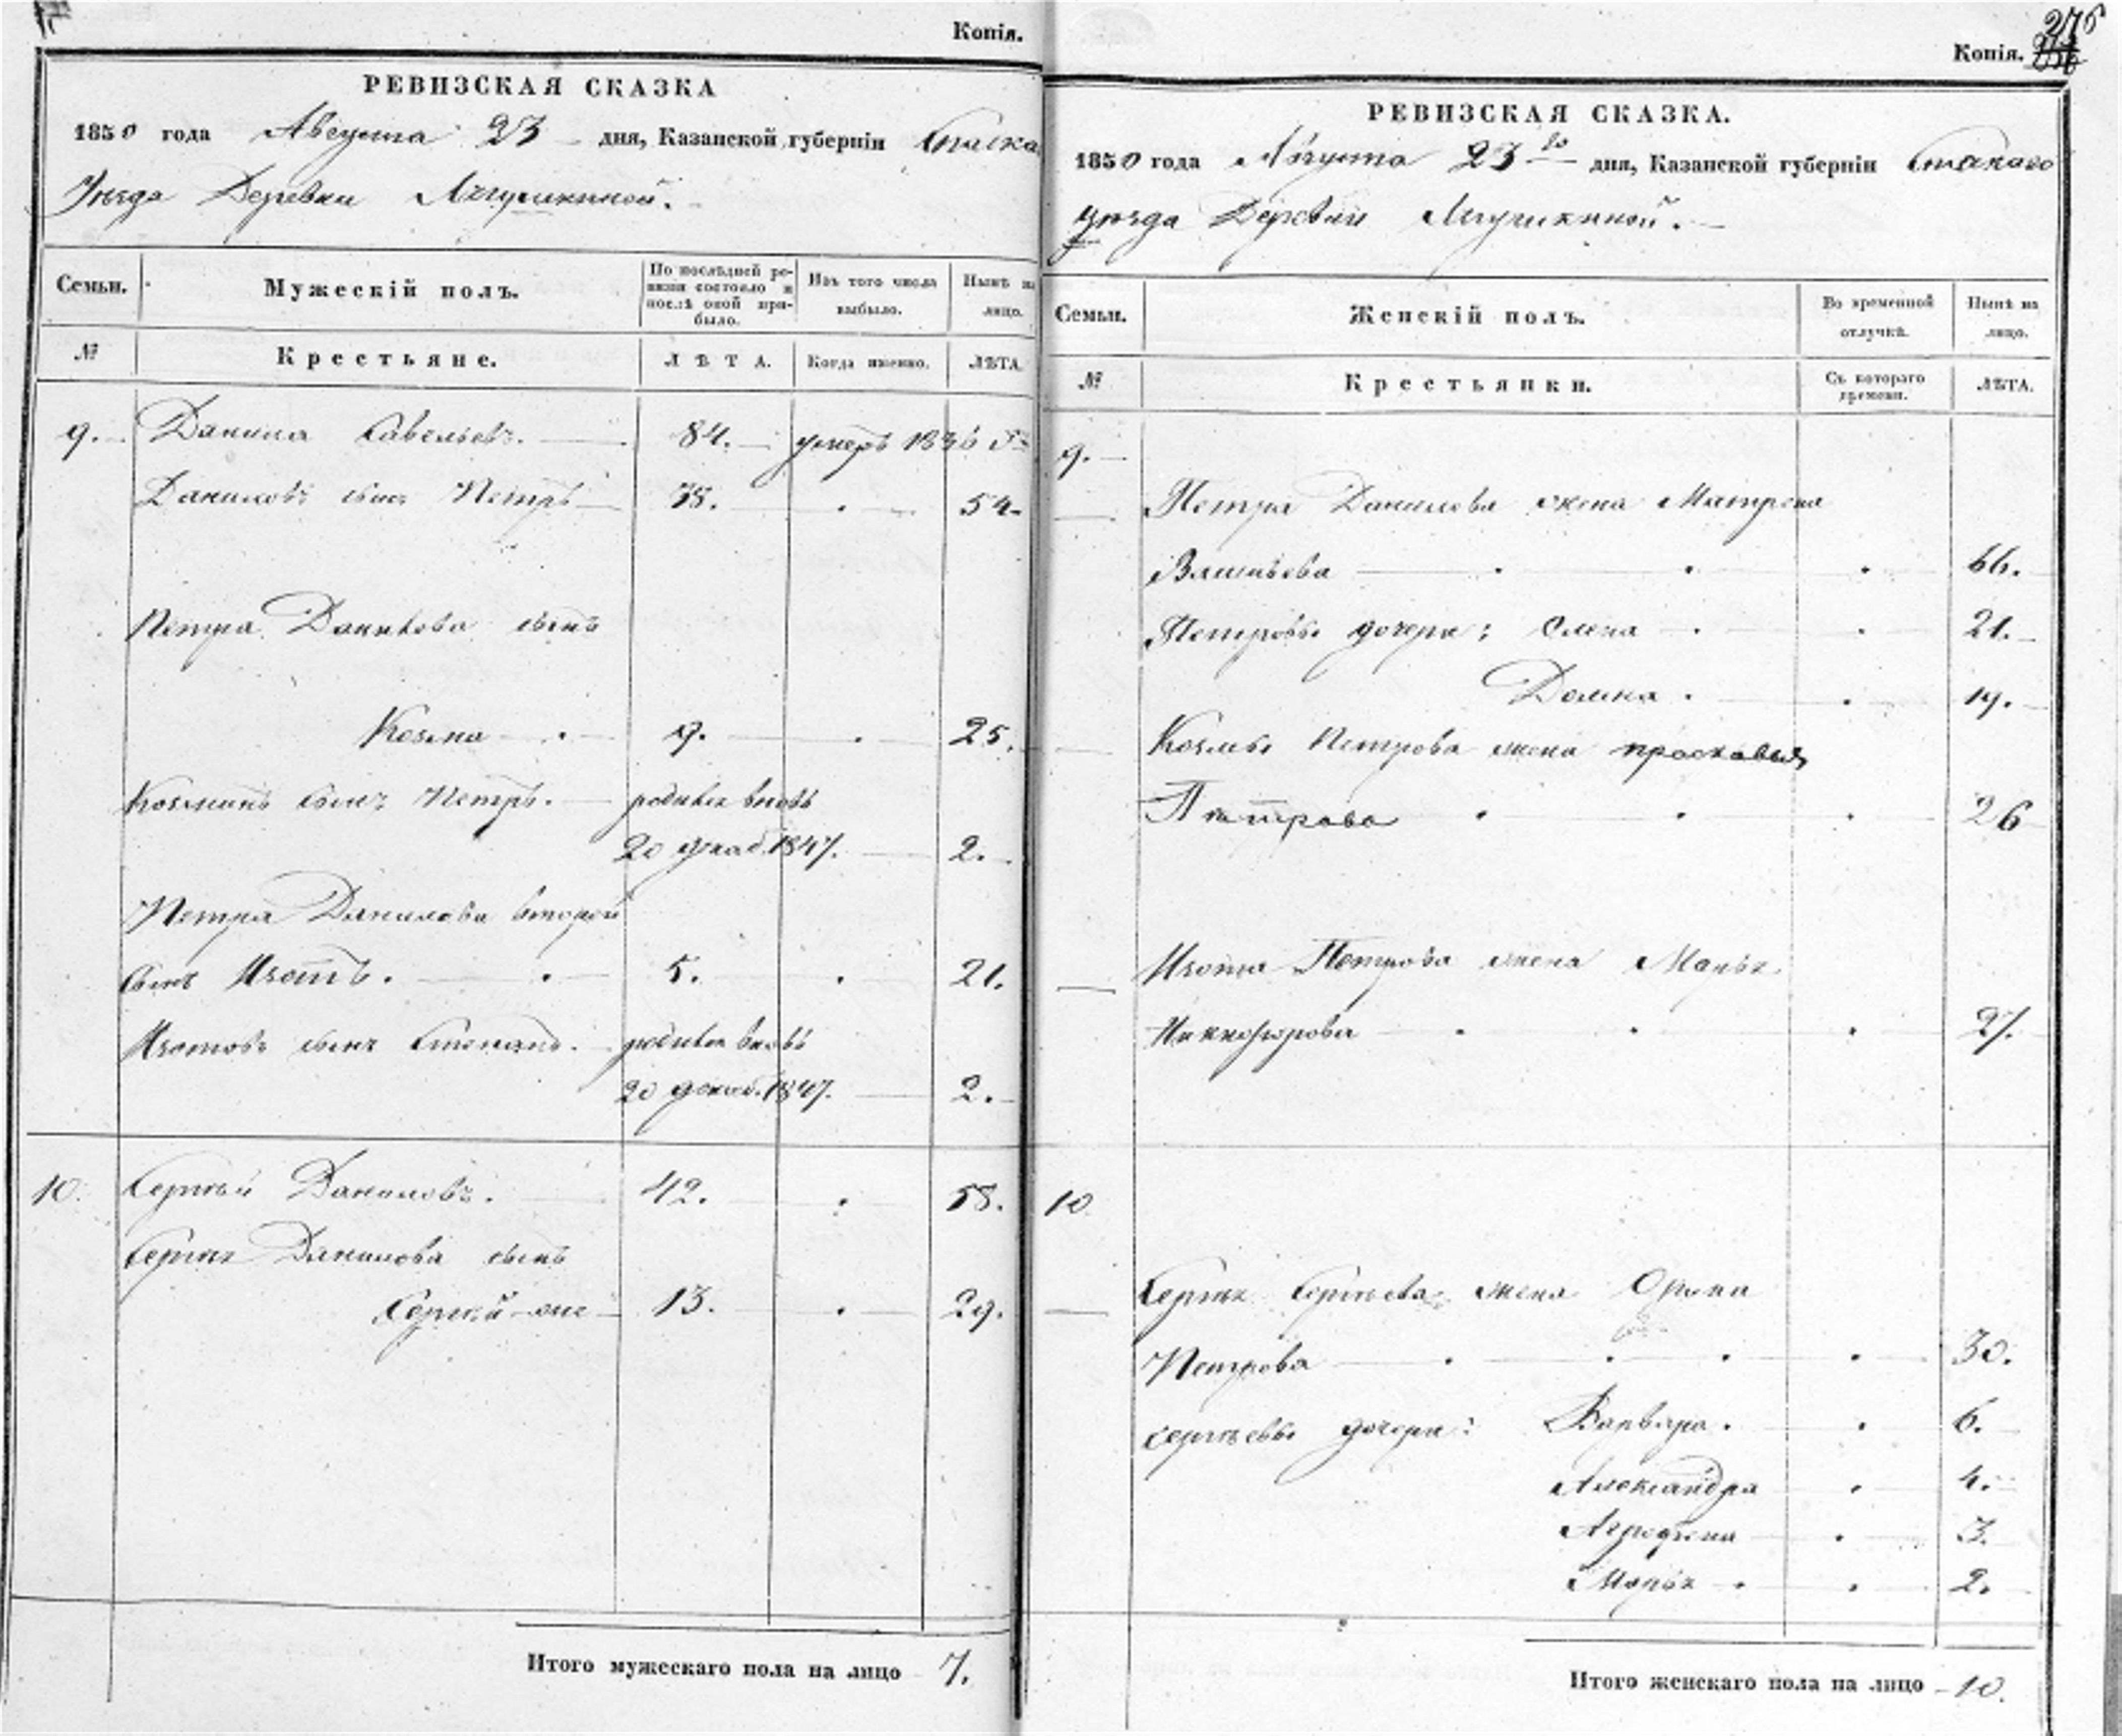 Копія.
РЕВИЗСКАЯ СКАЗКА
1850 года Августа 23 дня, Казанской губерніи Спаска
Уѣзда Деревни
Семьи.
Мужескій полъ.
По послѣдней ре-
визи состояло и
послѣ оной при-
было.
Изъ того числа
выбыло.
Нынѣ на
лицо.
№
Крестьяне.
ЛѢТА.
Когда именно.
ЛѢТА.
9. Данила Савельевъ. 84. умеръ 1836
Даниловъ сынъ Петръ 38. 54.
Петра Данилова сынъ
Козма 9. 25.
Козминъ сынъ Петръ. родился вновь
20 декаб. 1847. 2.
Петра Данилова второй
сынъ Изотъ. 5. 21.
Изотовъ сынъ Степанъ. родился вновь
20 декаб. 1847. 2.
10. Сергѣй Даниловъ. 42. 58.
Сергѣя Данилова сынъ
Сергѣй же 13. 29.
Итого мужескаго пола на лицо 7.
276
Копія.
РЕВИЗСКАЯ СКАЗКА.
1850 года Августа 23го дня, Казанской губерніи Спаскаго
уѣзда Деревни
Семьи.
Женскій полъ.
Во временной
отлучкѣ.
Нынѣ на
лицо.
№
Крестьянки.
Съ котораго
времени.
ЛѢТА.
9.
Петра Данилова жена Матрена
66.
Петровы дочери: Олена 21.
Домна. 19.
Козмы Петрова жена прасковья
Петрова 26
Изота Петрова жена Марья
Никифорова 27.
10
Сергѣя Сергѣева жена Орина
Петрова 30.
сергѣевы дочери: Варвара. 6.
Александра 4.
Агрофена 3.
Марья 2.
Итого женскаго пола на лицо 10.